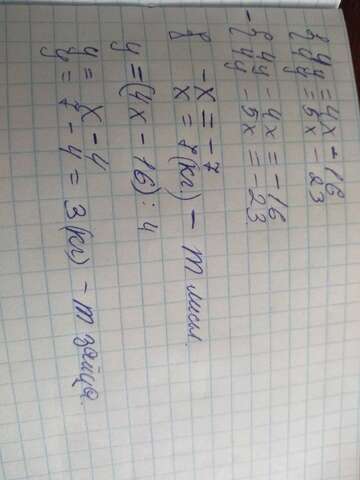 { 4y = 4x - 16
{ 4y = 5x - 23
- { 4y - 4x = -16
{ 4y - 5x = -23
- x = - 7
x = 7 (кг.) - m лисы.
y = (4x - 16) : 4
y = x - 4
y = 7 - 4 = 3 (кг) - m зайца.